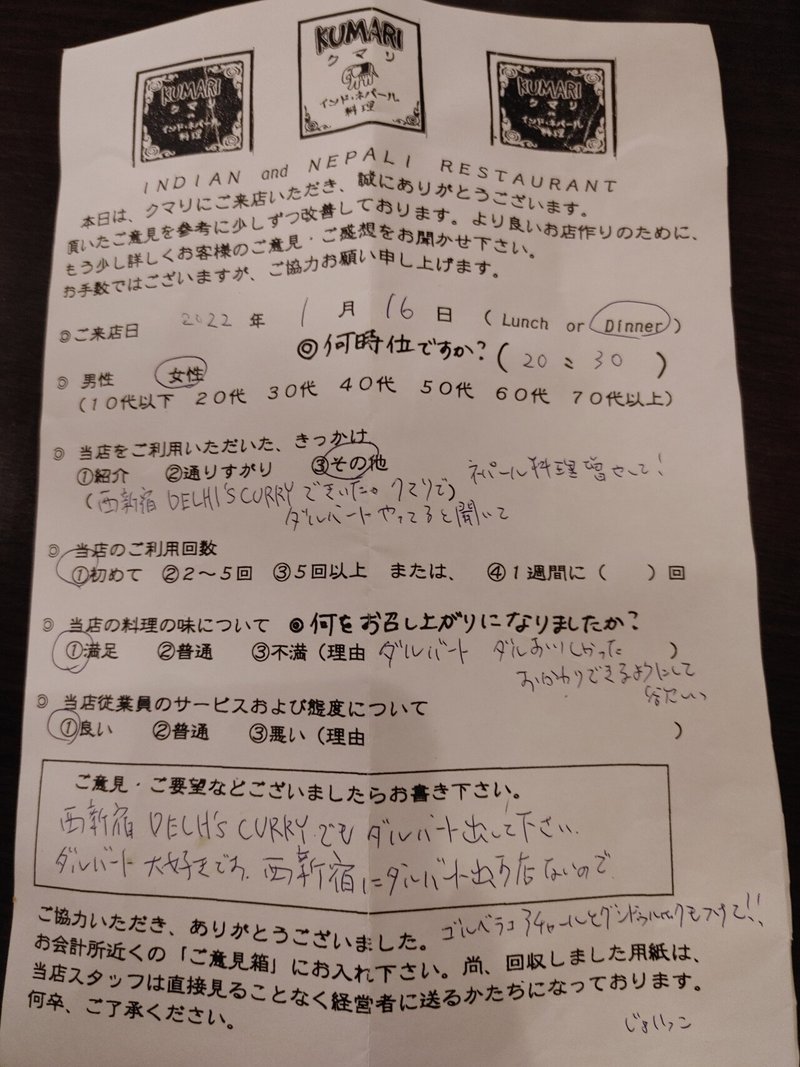 KUMARI
クマリ
インド・ネパール
料理
KUMARI
クマリ
インド・ネパール
料理
KUMARI
クマリ
インド・ネパール
料理
INDIAN and NEPALI RESTAURANT
本日は、クマリにご来店いただき、誠にありがとうございます。
頂いたご意見を参考に少しずつ改善しております。より良いお店作りのために、
もう少し詳しくお客様のご意見・ご感想をお聞かせ下さい。
お手数ではございますが、ご協力お願い申し上げます。
◎ご来店日 2022 年 1 月 16 日 (Lunch or Dinner)
◎何時位ですか?(20:30)
◎ 男性 女性
(10代以下 20代 30代 40代 50代 60代 70代以上)
◎ 当店をご利用いただいた、きっかけ
①紹介 ②通りすがり ③その他 ネパール料理増やして!
(西新宿 DELHI'S CURRY できいた。クマリで)
ダルバートやってると聞いて
◎ 当店のご利用回数
①初めて ②2~5回 ③5回以上 または、 ④1週間に( )回
◎ 当店の料理の味について ◎何をお召し上がりになりましたか?
①満足 ②普通 ③不満(理由 ダルバート ダルおいしかった )
おかわりできるようにして
◎ 当店従業員のサービスおよび態度について
①良い ②普通 ③悪い(理由 )
ご意見・ご要望などございましたらお書き下さい。
西新宿 DELHI'S CURRY でもダルバート出して下さい.
ダルバート大好きです。西新宿にダルバート出す店ないので.
ゴルベラコアチャールとグンドゥルックもつけて!!
ご協力いただき、ありがとうございました。
お会計所近くの「ご意見箱」にお入れ下さい。尚、回収しました用紙は、
当店スタッフは直接見ることなく経営者に送るかたちになっております。
何卒、ご了承ください。
じょいっこ